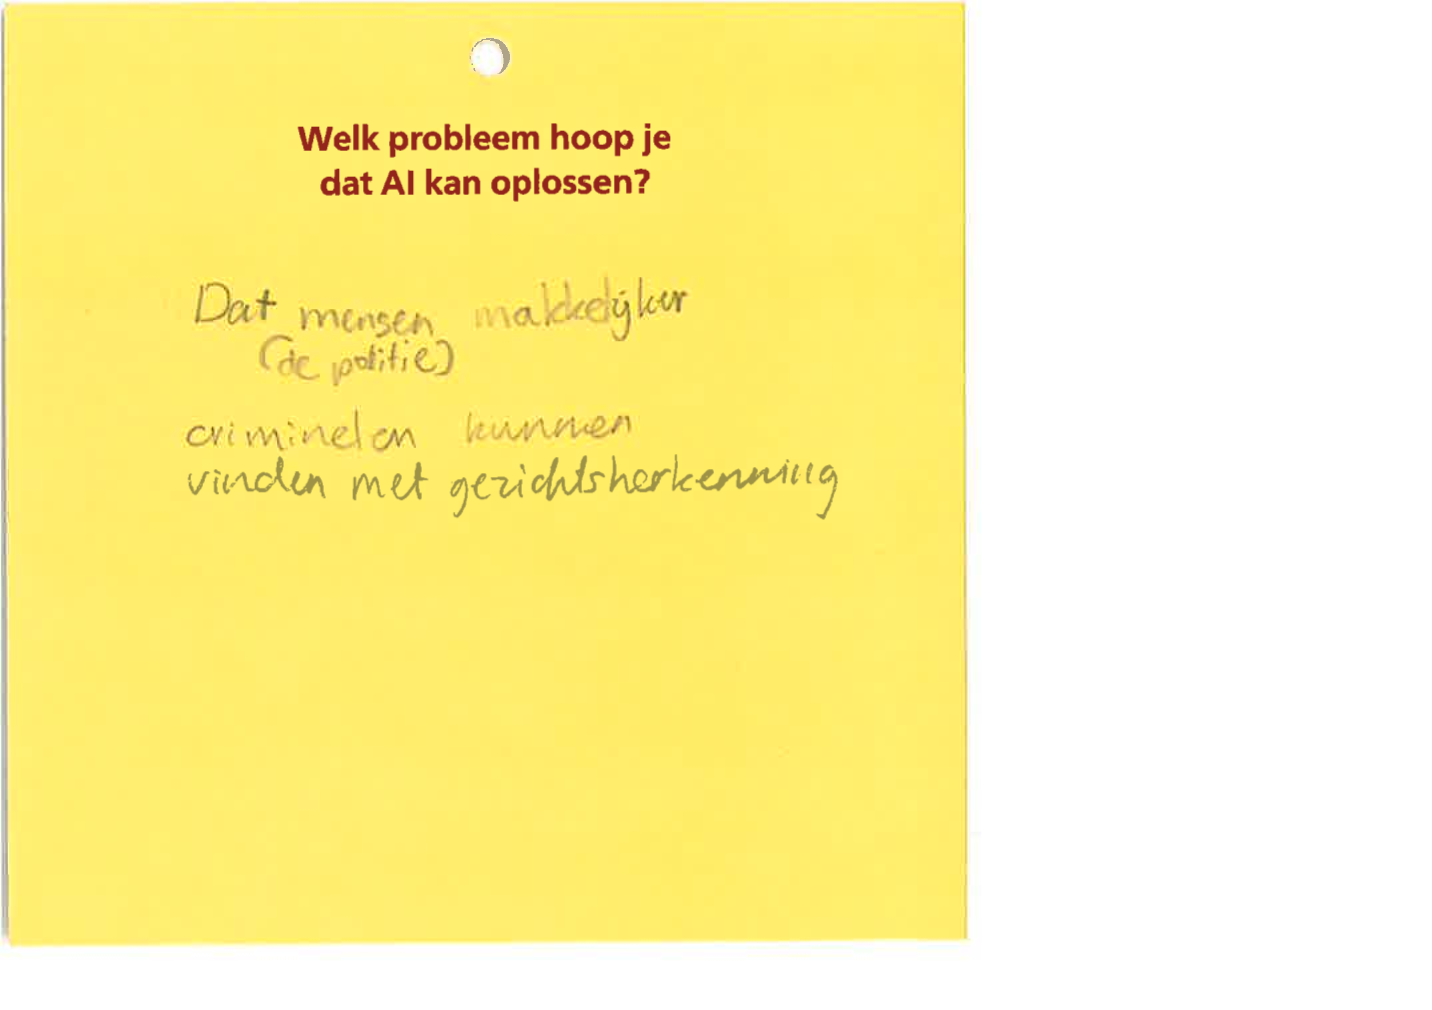 Welk probleem hoop je
dat AI kan oplossen?
Dat mensen makkelijker
(de politie)
criminelen kunnen
vinden met gezichtsherkenning